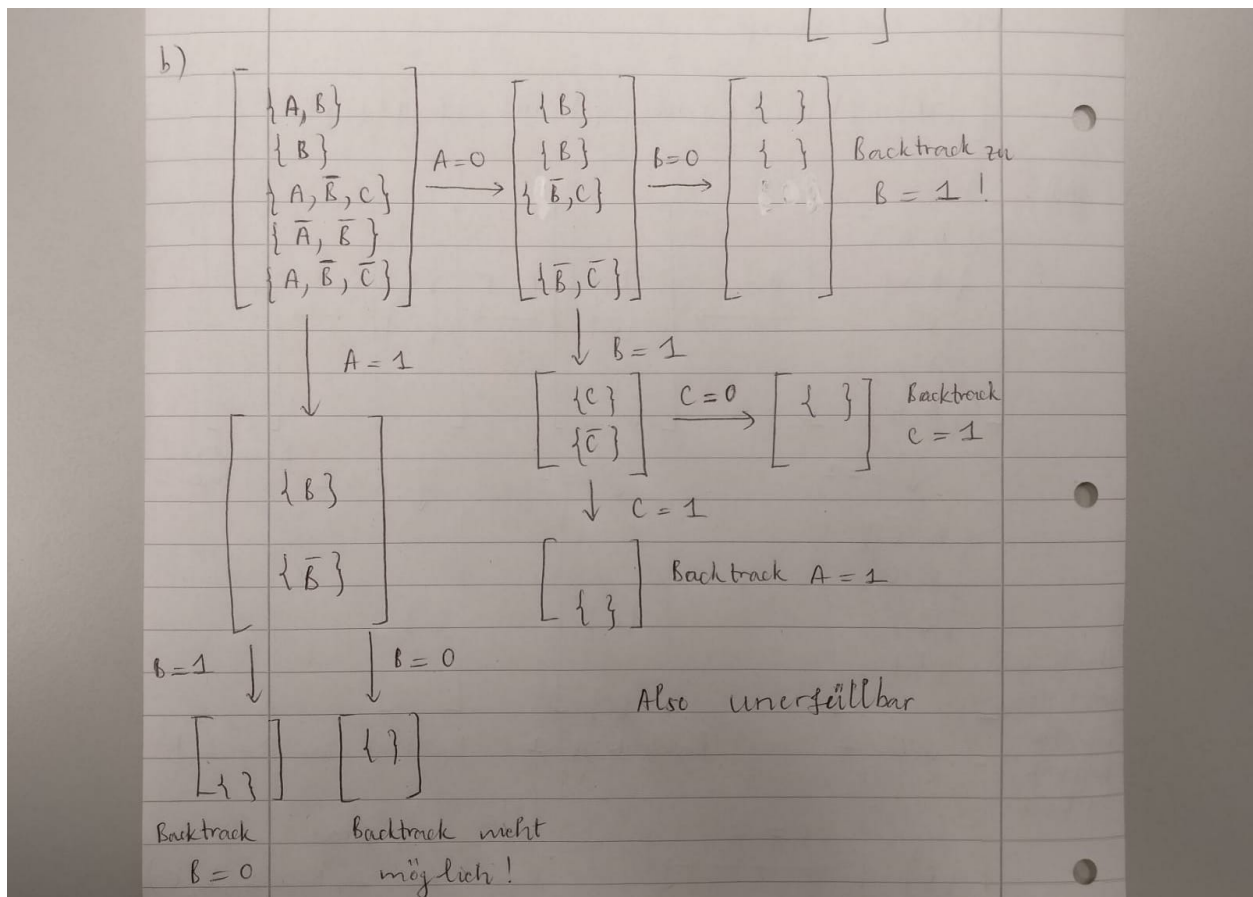 b)
{A, B}
{B}
{A, B̅, C}
{A̅, B̅}
{A, B̅, C̅}
A=0
{B}
{B}
{B̅,C}
{B̅,C̅}
B=0
{ }
{ }
Backtrack zu
B = 1 !
A = 1
B = 1
{C}
{C̅}
C=0
{ }
Backtrack
C = 1
{B}
{B̅}
C = 1
{ }
Backtrack A = 1
B=1
B = 0
{ }
{ }
Also unerfüllbar
Backtrack
B = 0
Backtrack nicht
möglich !